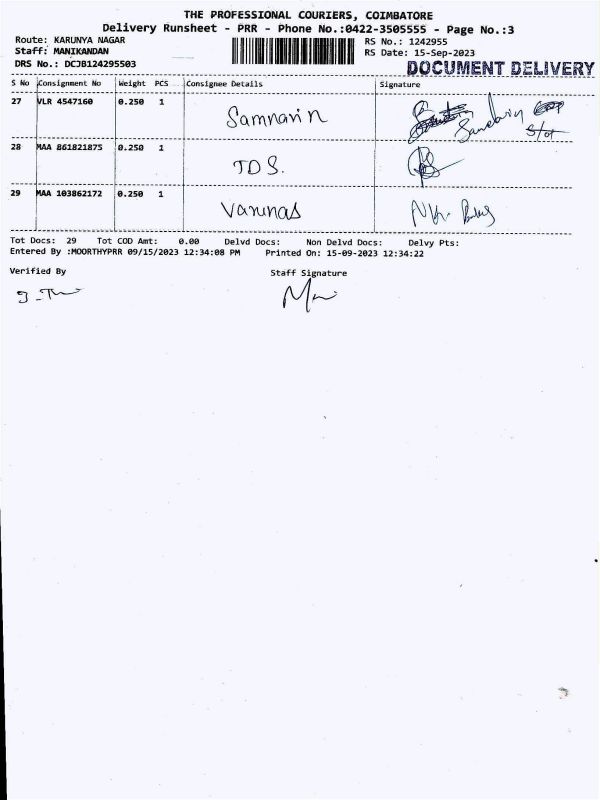 THE PROFESSIONAL COURIERS, COIMBATORE
Delivery Runsheet - PRR - Phone No.:0422-3505555 - Page No.:3
Route: KARUNYA NAGAR RS No.: 1242955
Staff: MANIKANDAN RS Date: 15-Sep-2023
DRS No.: DCJB124295503 DOCUMENT DELIVERY
S No Consignment No Weight PCS Consignee Details Signature
27 VLR 4547160 0.250 1 Samnavin
28 MAA 861821875 0.250 1 TDS.
29 MAA 103862172 0.250 1 Varunas
Tot Docs: 29 Tot COD Amt: 0.00 Delvd Docs: Non Delvd Docs: Delvy Pts:
Entered By :MOORTHYPRR 09/15/2023 12:34:08 PM Printed On: 15-09-2023 12:34:22
Verified By Staff Signature